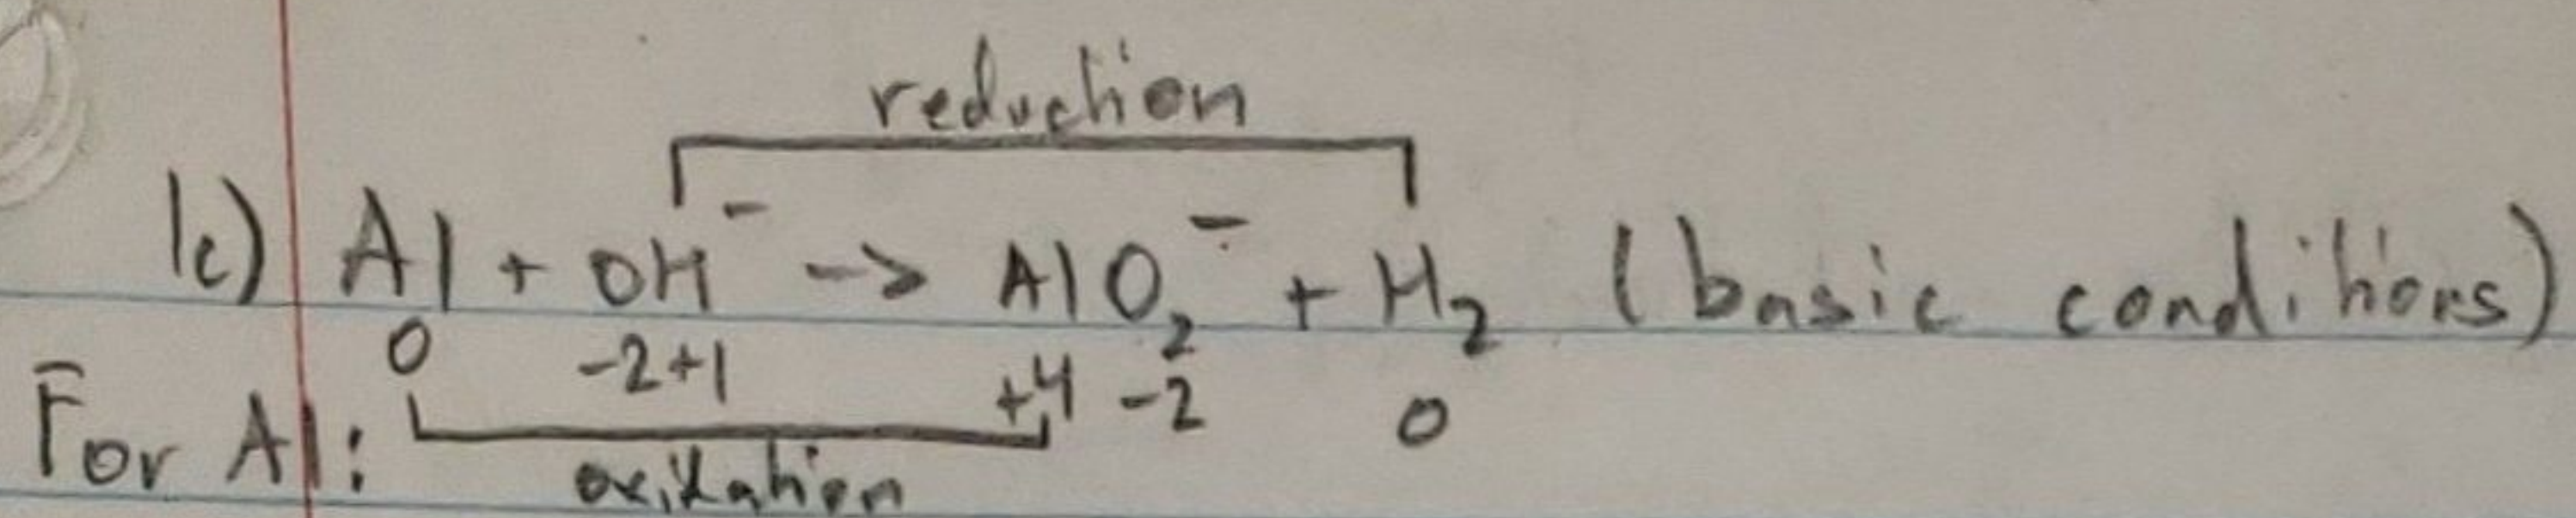 reduction
1c) Al + OH⁻ -> AlO₂⁻ + H₂ (basic conditions)
0 -2+1 +4 -2 0
For Al:
oxidation